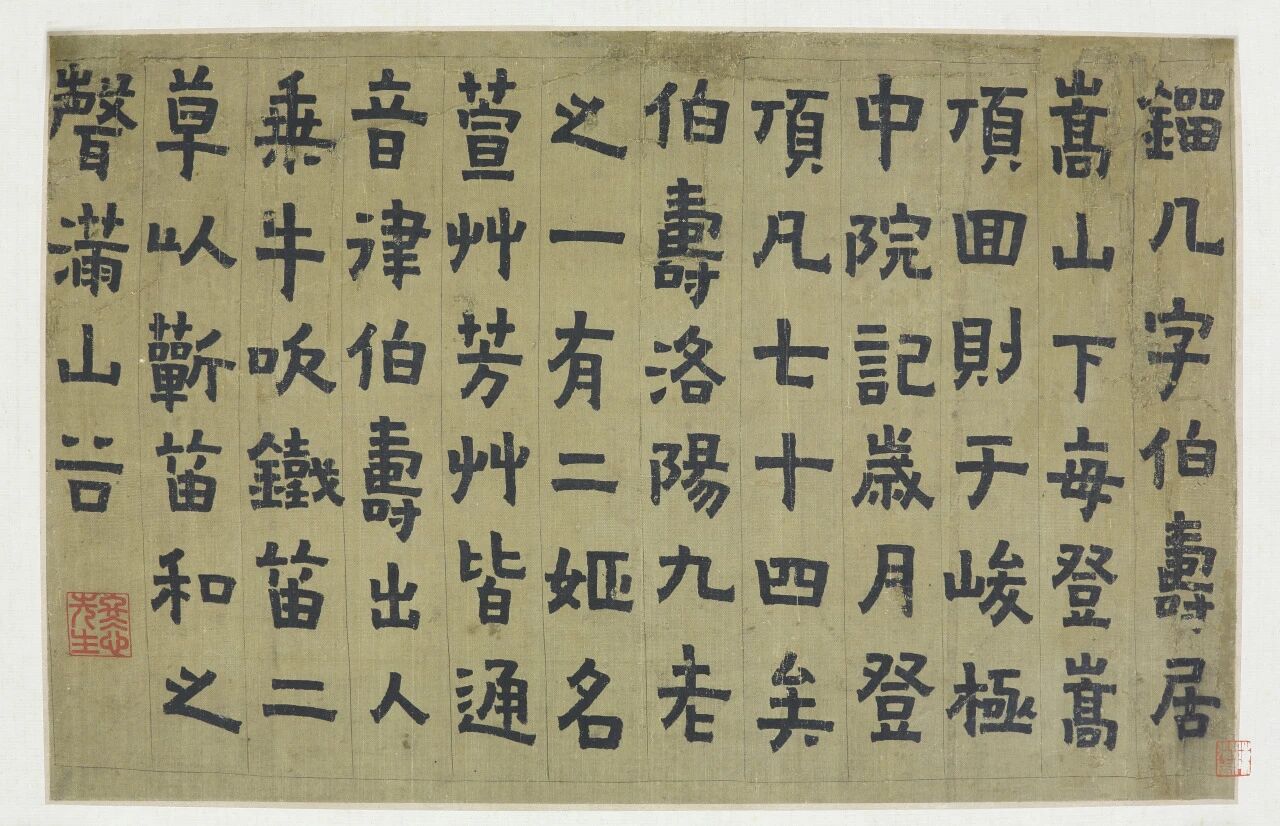 鎦几字伯壽居
嵩山下每登嵩
頂回則于峻極
中院記歲月登
頂凡七十四矣
伯壽洛陽九老
之一有二姬名
萱艸芳艸皆通
音律伯壽出人
乘牛吹鐵笛二
草以蘄笛和之
聲滿山谷
冬心先生